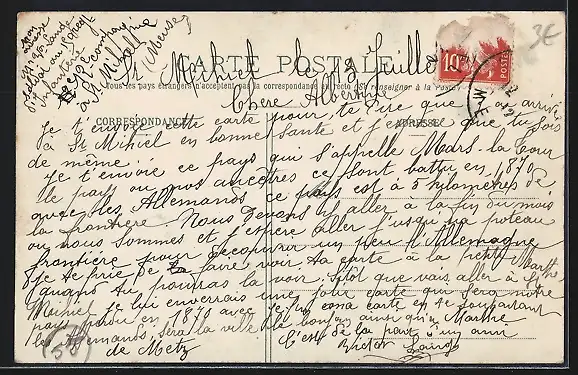 Mon adresse
soldat au
Infanterie
Compagnie
St Mihiel
(Meuse)
CARTE POSTALE
St Mihiel le 13 Juillet
Tous les pays étrangers n'acceptent pas la correspondance au recto (Se renseigner à la Poste)
Chère Albertine
CORRESPONDANCE
ADRESSE
Je t'envoie cette carte pour te dire que je suis arrivé
à St Mihiel en bonne santé et j'espère que tu sois
de même.
Je t'envoie ce pays qui s'appelle Mars-la-Tour
le pays ou nos ancêtres ce sont battu en 1870
avec les Allemands ce pays est à 5 kilomètres de
la frontière. Nous devons y aller à la fin du mois
ou nous sommes et j'espère aller jusqu'au poteau
frontière pour découvrir un peu l'Allemagne
Je te prie de faire voir ta carte à la petite Marthe
quand tu pourras la voir. Sitôt que vais aller à St
Mihiel je lui enverrais une jolie carte qui sera notre
pays perdu en 1870 avec
les Allemands, sera la ville
de Metz
bonjour ainsi qu'à Marthe
C'est de la part d'un ami
Victor
10
POSTES
3€
(58)